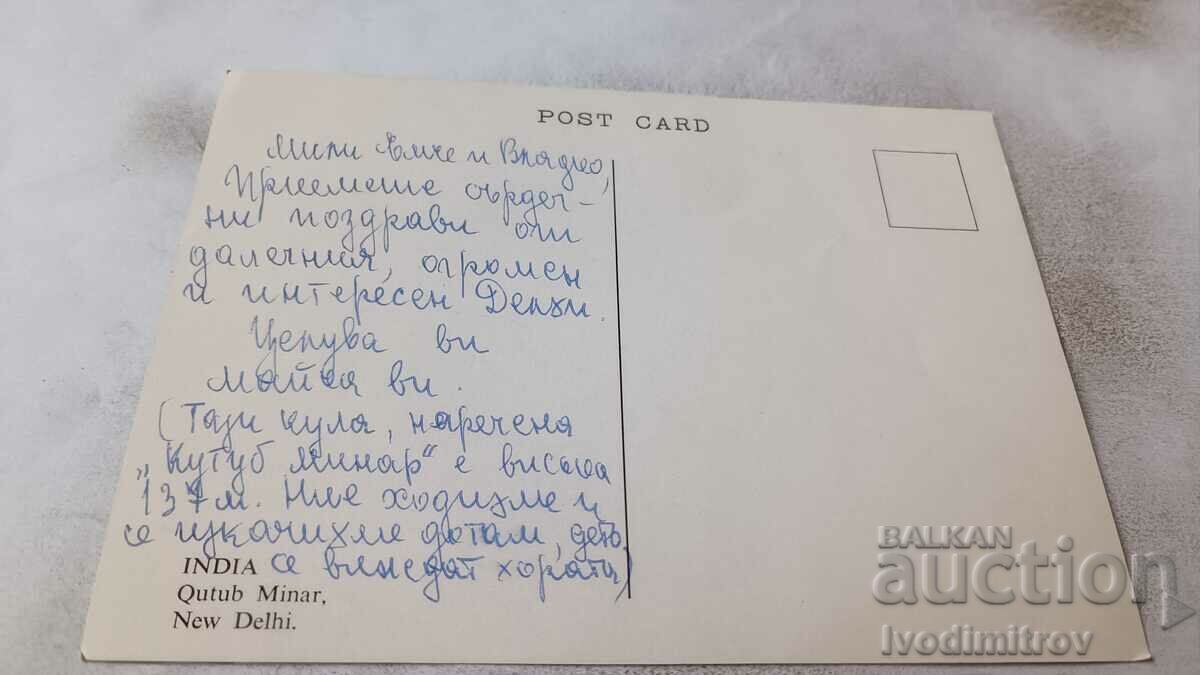 POST CARD
Мили Емче и Владко,
Приемете сърдеч-
ни поздрави от
далечния, огромен
и интересен Делхи.
Целува ви
майка ви.
(Тази кула, наречена
„Кутуб Минар“ е висока
137 м. Ние ходихме и
се изкачихме дотам, дето
се виждат хората)
INDIA
Qutub Minar,
New Delhi.
BALKAN
auction
Ivodimitrov